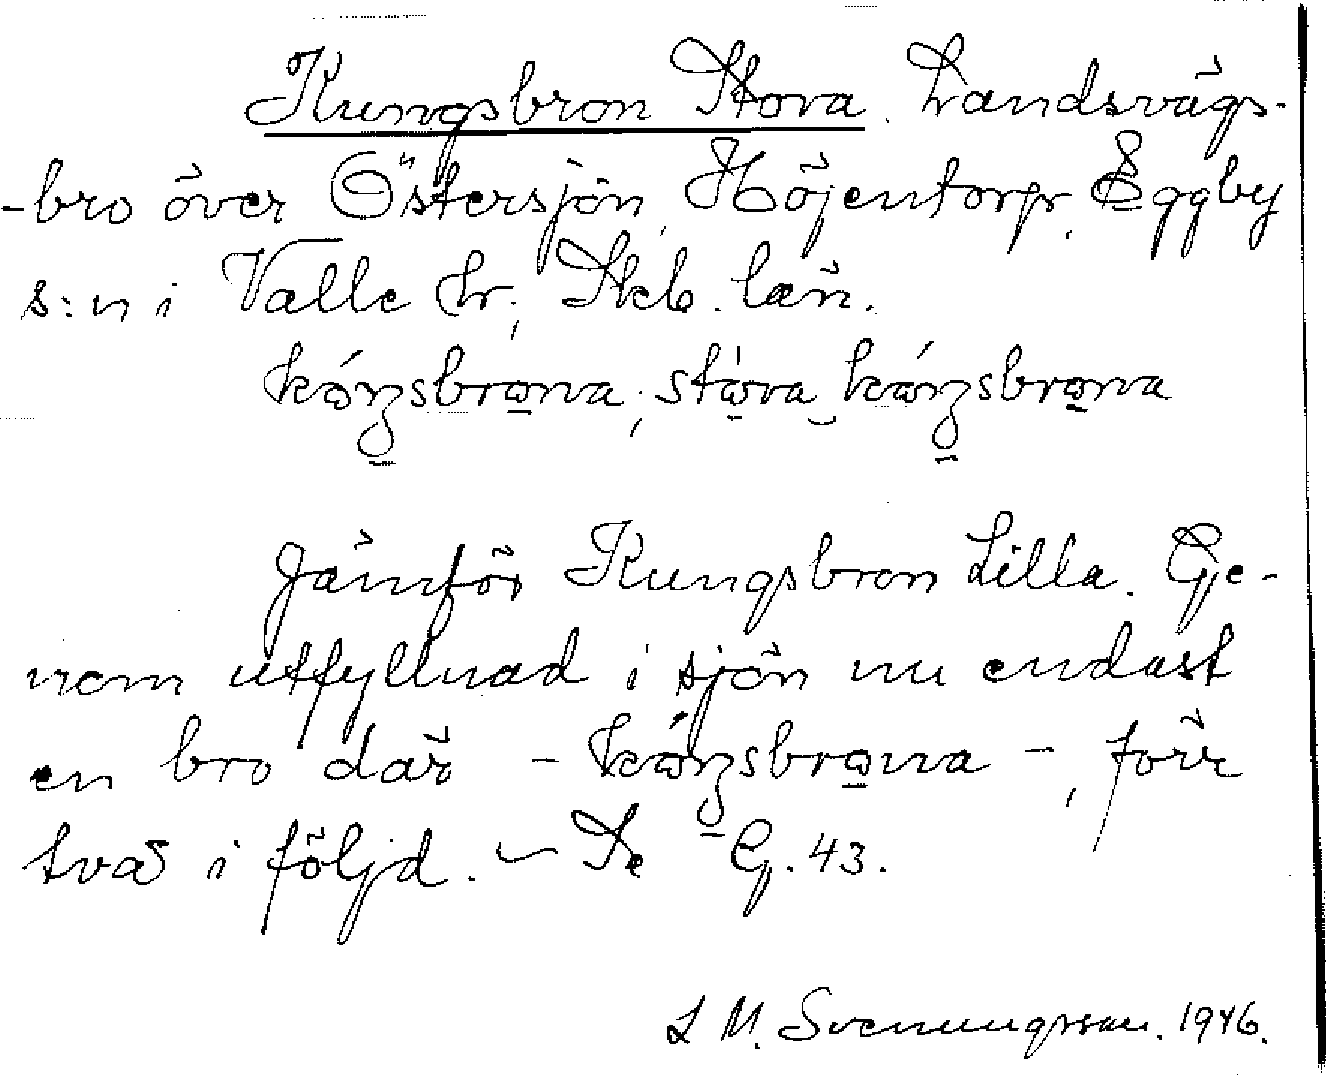 Kungsbron Stora. Landsvägs-
-bro över Östersjön, Höjentorp, Eggby
s:n i Valle hr, Skb. län.
Jämför Kungsbron Lilla. Ge-
nom utfyllnad i sjön nu endast
en bro där - -, förr
två i följd. ~ Se G. 43.
L M. Svenungsson. 1946.